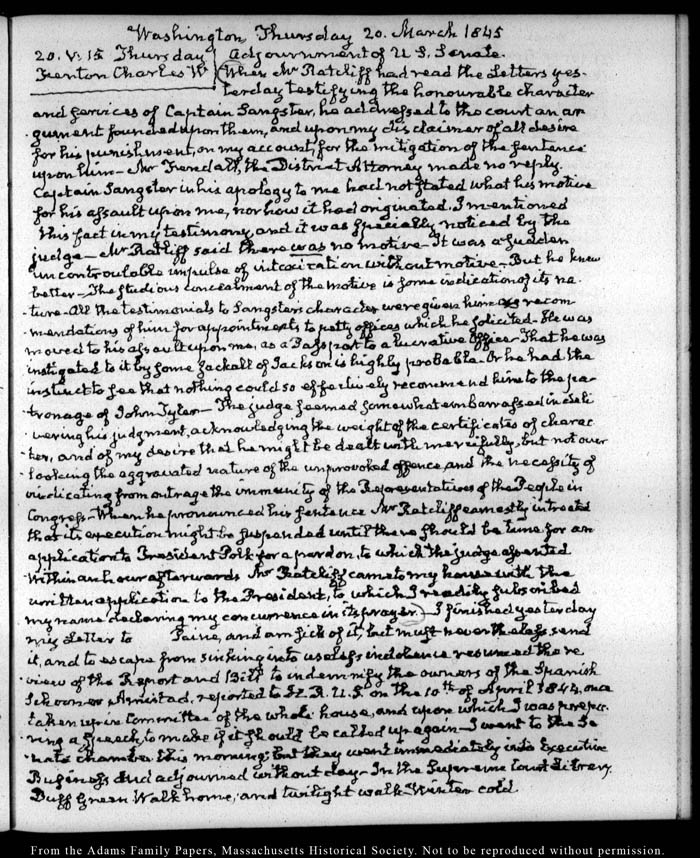 Washington, Thursday 20. March 1845
20. V: 15 Thursday
Adjournment of U.S. Senate.
Fenton Charles W
When Mr Ratcliff had read the Letters yes-
terday testifying the honourable character
and services of Captain Sangster, he addressed to the court an ar
gument founded upon them, and upon my disclaimer of all desire
for his punishment, on my account, for the mitigation of the sentence
upon him – Mr Fendall, the District Attorney made no reply.
Captain Sangster in his apology to me had not stated what his motive
for his assault upon me, nor how it had originated. I mentioned
this fact in my testimony and it was specially noticed by the
judge – Mr Ratliff said there was no motive – It was a sudden
uncontroulable impulse of intoxication without motive – But he knew
better – The studious concealment of the motive is some indication of its na-
ture – All the testimonials to Sangsters character were given him as recom
mendations of him for appointments to petty offices which he solicited. He was
moved to his assault upon me, as a Passport to a lucrative Office – That he was
instigated to it by some Jackall of Jackson is highly probable – Or he had the
instinct to see that nothing could so effectively recommend him to the pa-
tronage of John Tyler – The judge seemed somewhat embarrassed in deli
vering his judgment, acknowledging the weight of the certificates of charac
ter, and of my desire that he might be dealt with mercifully, but not over
looking the aggravated nature of the unprovoked offence, and the necessity of
vindicating from outrage the immunity of the Representatives of the People in
Congress – When he pronounced his sentence Mr Ratcliff earnestly intreated
that its execution might be suspended until there should be time for an
application to President Polk for a pardon, to which the judge assented
Within an hour afterwards Mr Ratcliff came to my house with the
written application to the President, to which I readily subscribed
my name declaring my concurrence in its prayer. – I finished yesterday
my Letter to Paine, and am sick of it, but must nevertheless, send
it, and to escape from sinking into useless indolence resumed the re
view of the Report and Bill to indemnify the owners of the Spanish
Schooner Amistad, reported to H.R.U.S. on the 10th of April 1844, once
taken up in Committee of the whole house, and upon which I was prepa-
ring a speech to make if it should be called up again – I went to the Se
nate chamber this morning, but they went immediately into Executive
Business and adjourned without day – In the Supreme Court Library.
Duff Green Walk home, and twilight walk – Winter cold.
From the Adams Family Papers, Massachusetts Historical Society. Not to be reproduced without permission.